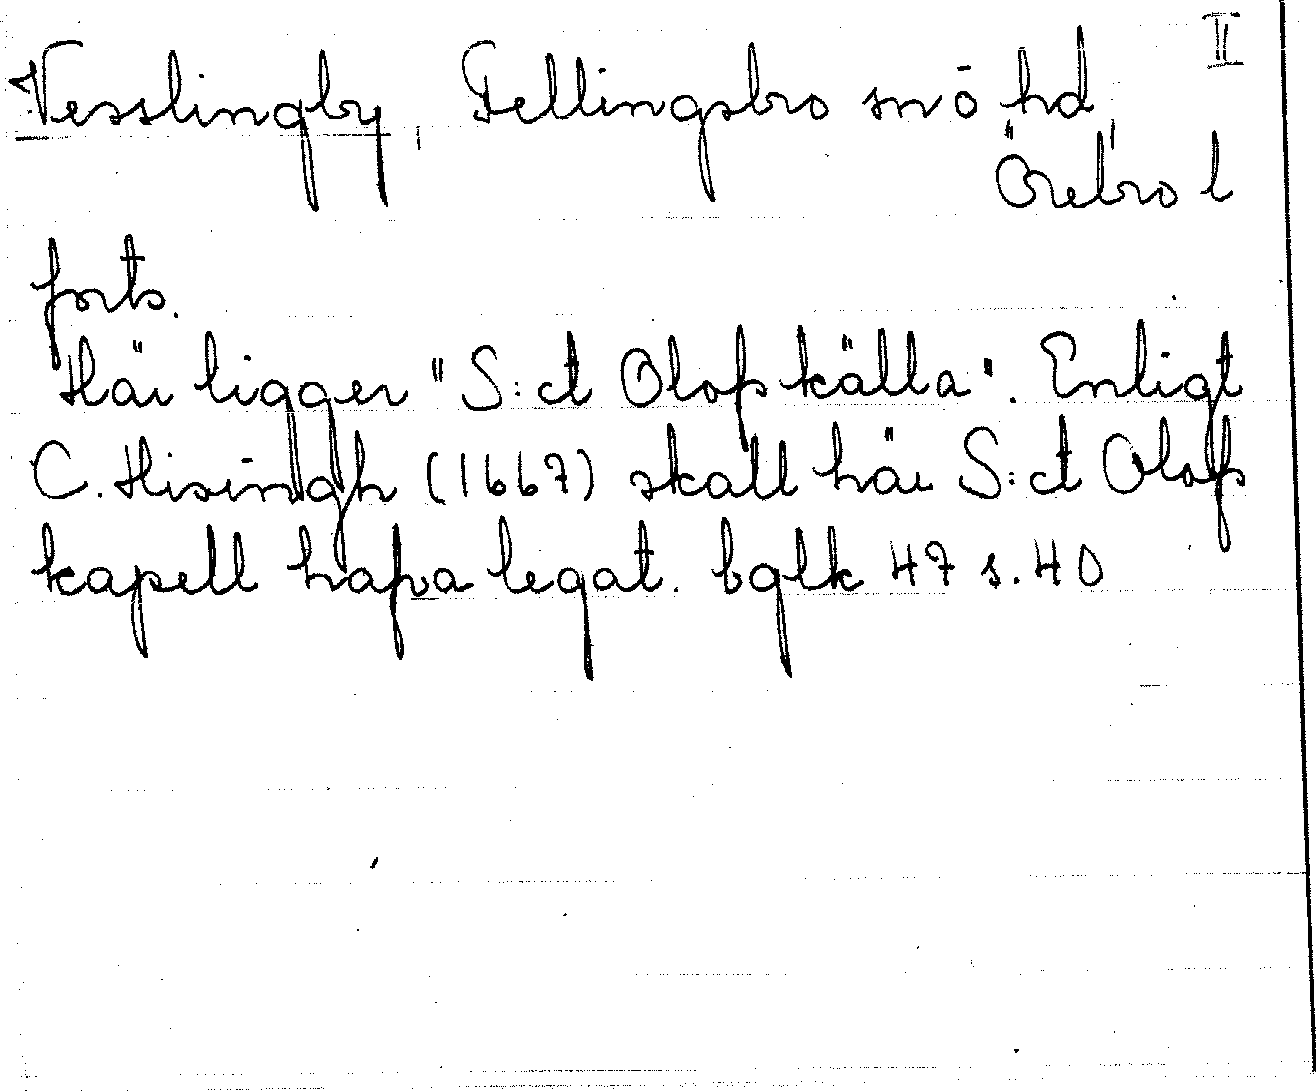 II
Vesslingby, Fellingsbro sn o hd,
Örebro l
forts.
Här ligger "S:ct Olofs källa". Enligt
C. Hisingh (1667) skall här S:ct Olofs
kapell hafva legat. bglk 47 s. 40